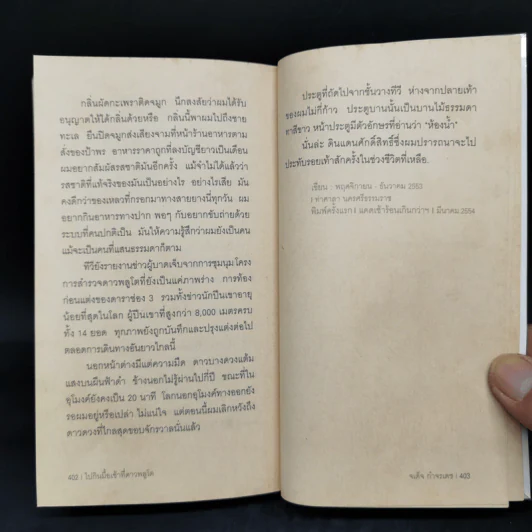 กลิ่นผัดกะเพราติดจมูก นึกสงสัยว่าผมได้รับ
อนุญาตให้ได้กลิ่นด้วยหรือ กลิ่นนี้พาผมไปถึงชาย
ทะเล ยืนปิดจมูกส่งเสียงจามที่หน้าร้านอาหารตาม
สั่งของป้าพร อาหารราคาถูกที่ลงบัญชียาวเป็นเดือน
ผมอยากสัมผัสรสชาติมันอีกครั้ง แม้จำไม่ได้แล้วว่า
รสชาติที่แท้จริงของมันเป็นอย่างไร อย่างไรเสีย มัน
คงดีกว่าของเหลวที่กรอกมาทางสายยางนี้ทุกวัน ผม
อยากกินอาหารทางปาก พอๆ กับอยากขับถ่ายด้วย
ระบบที่คนปกติเป็น มันให้ความรู้สึกว่าผมยังเป็นคน
แม้จะเป็นคนที่แสนธรรมดาก็ตาม
ทีวียังรายงานข่าวผู้บาดเจ็บจากการชุมนุมโครง
การสำรวจดาวพลูโตที่ยังเป็นแค่ภาพร่าง การท้อง
ก่อนแต่งของดาราช่อง 3 รวมทั้งข่าวนักปีนเขาอายุ
น้อยที่สุดในโลก ผู้ปีนเขาที่สูงกว่า 8,000 เมตรครบ
ทั้ง 14 ยอด ทุกภาพยังถูกบันทึกและปรุงแต่งต่อไป
ตลอดการเดินทางอันยาวไกลนี้
นอกหน้าต่างมีแต่ความมืด ดาวบางดวงแต้ม
แสงบนผืนฟ้าดำ ข้างนอกไม่รู้ผ่านไปกี่ปี ขณะที่ใน
อุโมงค์ยังคงเป็น 20 นาที โลกนอกอุโมงค์ทางออกยัง
รอผมอยู่หรือเปล่า ไม่แน่ใจ แต่ตอนนี้ผมเลิกหวังถึง
ดาวดวงที่ไกลสุดขอบจักรวาลนั่นแล้ว
402 | ไปกินมื้อเช้าที่ดาวพลูโต
ประตูที่ถัดไปจากชั้นวางทีวี ห่างจากปลายเท้า
ของผมไม่กี่ก้าว ประตูบานนั้นเป็นบานไม้ธรรมดา
ทาสีขาว หน้าประตูมีตัวอักษรที่อ่านว่า “ห้องน้ำ”
นั่นล่ะ ดินแดนศักดิ์สิทธิ์ซึ่งผมปรารถนาจะไป
ประทับรอยเท้าสักครั้งในช่วงชีวิตที่เหลือ.
เขียน : พฤศจิกายน - ธันวาคม 2553
| ท่าศาลา นครศรีธรรมราช
พิมพ์ครั้งแรก | แดดเช้าร้อนเกินกว่าฯ | มีนาคม 2554
จเด็จ กำจรเดช | 403